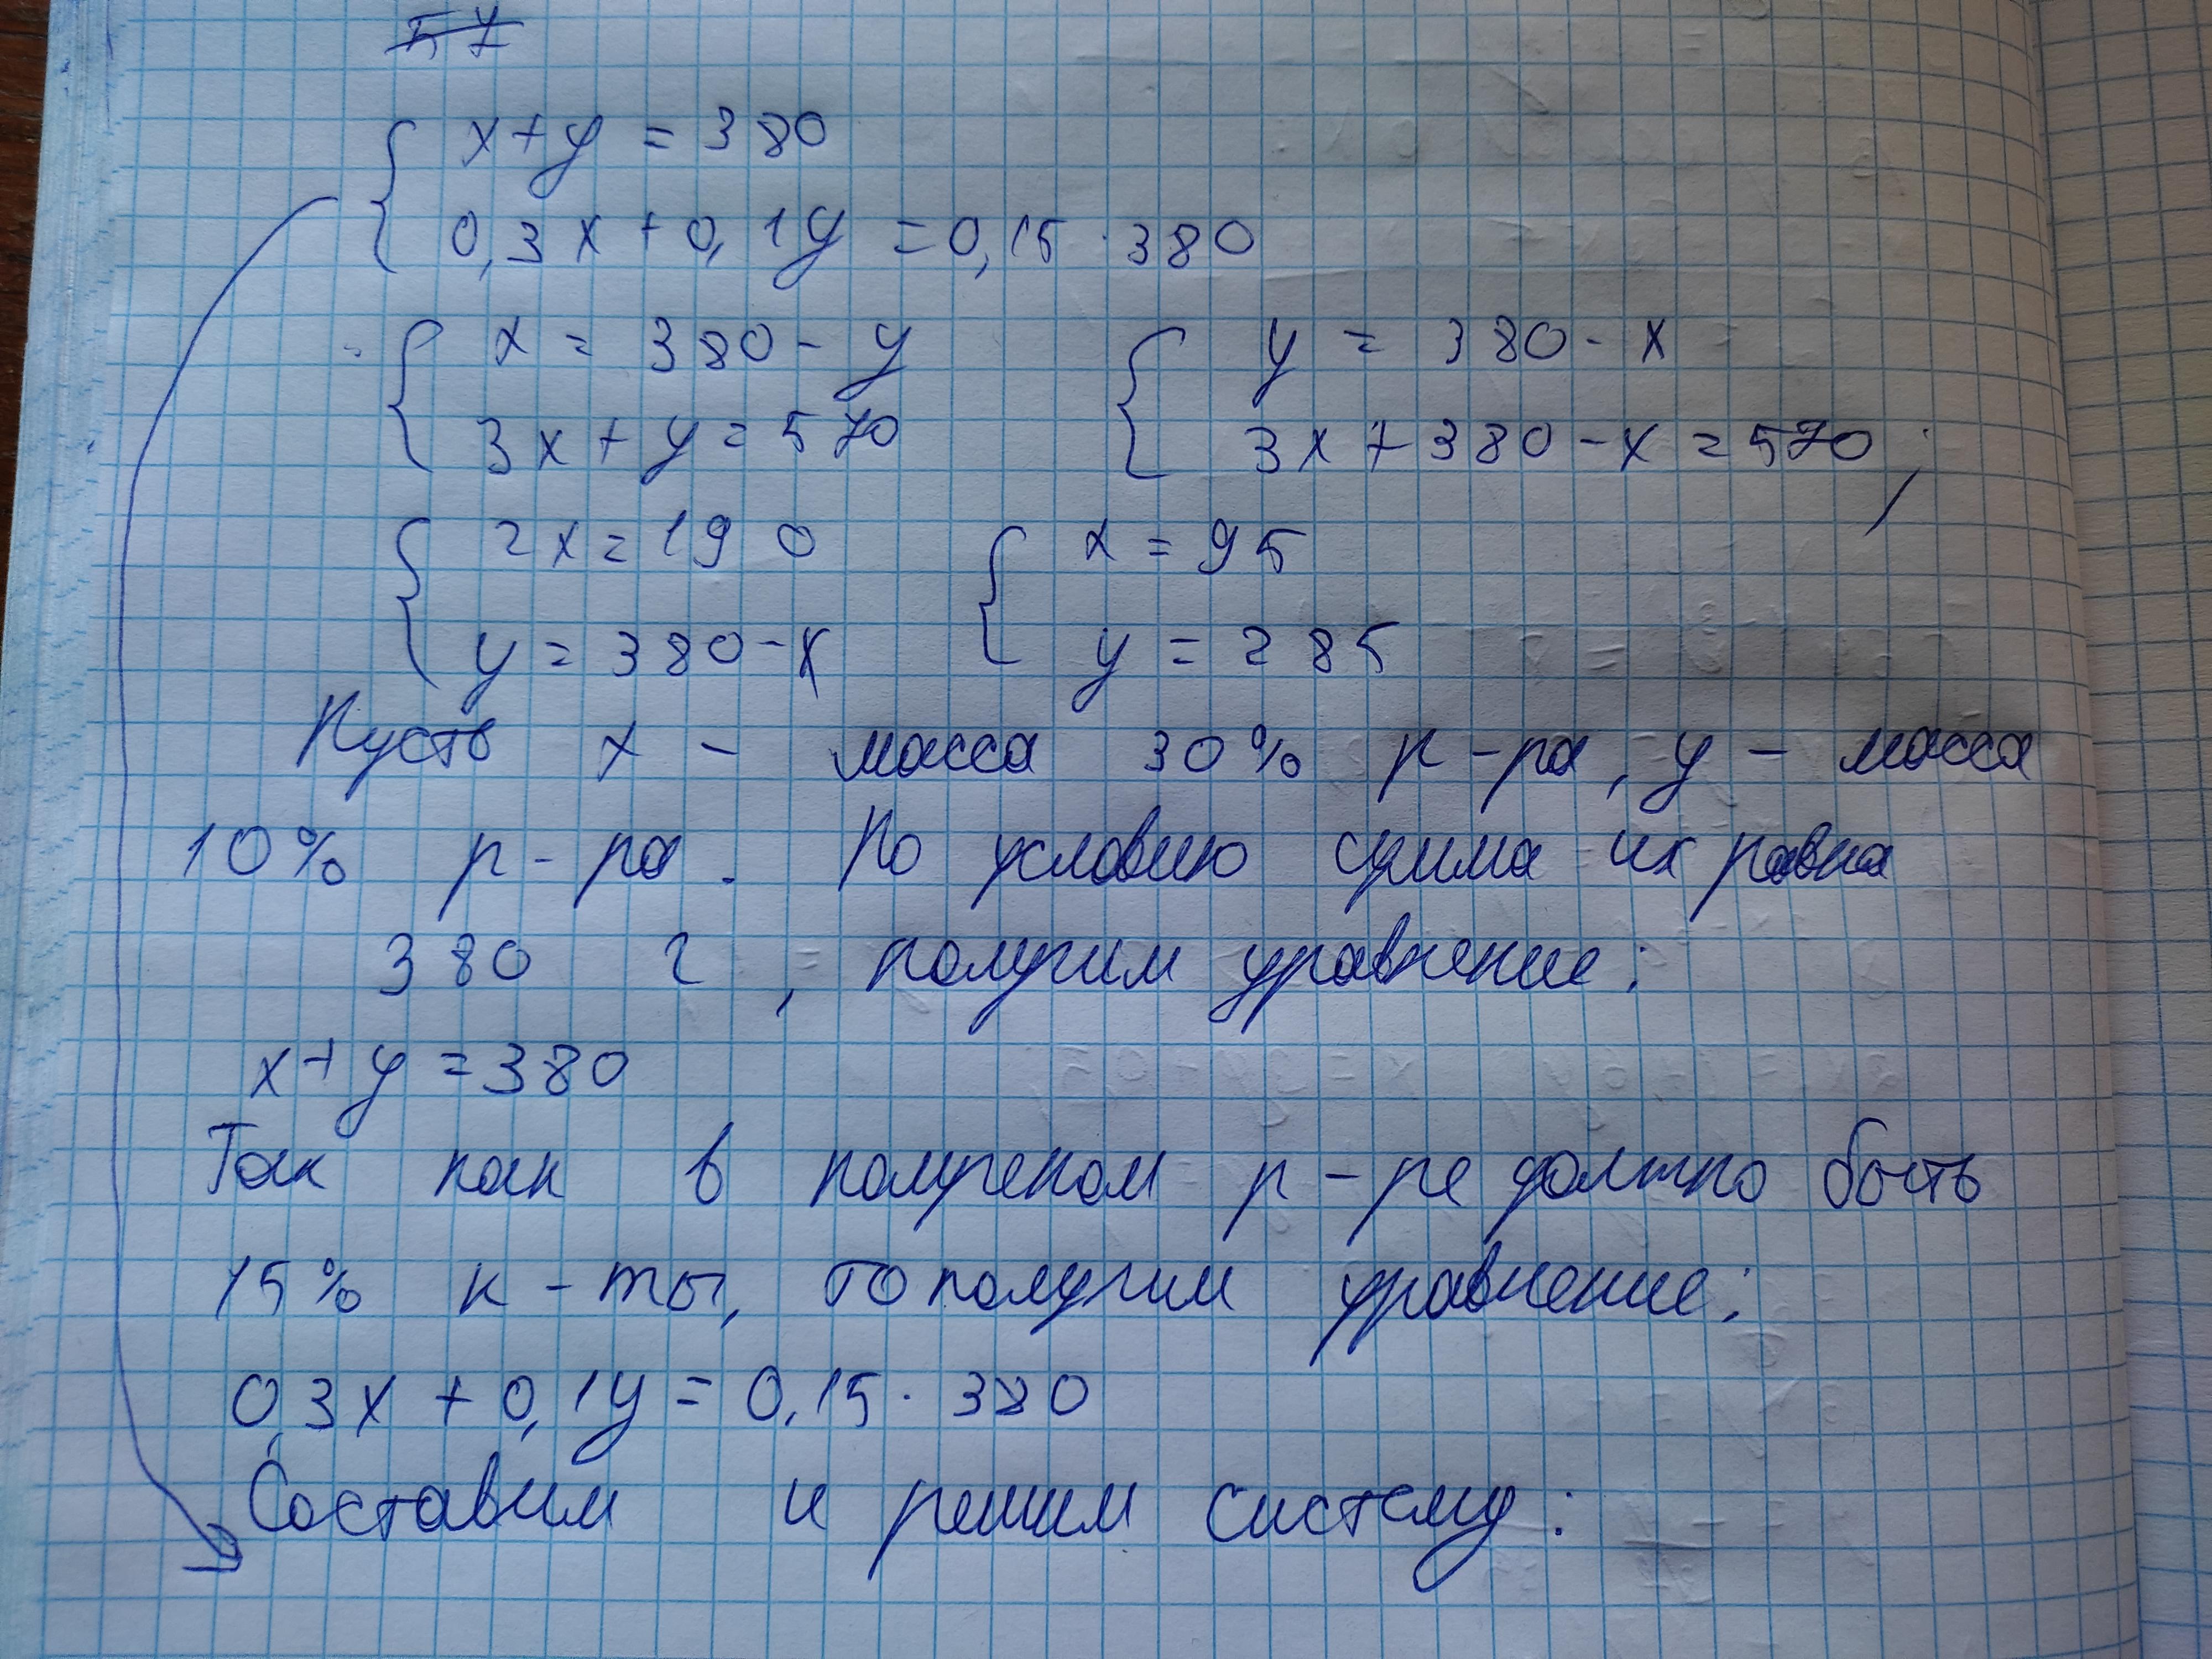 x+y = 380
0,3x + 0,1y = 0,15 · 380
x = 380 - y
y = 380 - x
3x + y = 570
3x + 380 - x = 570;
2x = 190
x = 95
y = 380 - x
y = 285
Пусть x - масса 30% р-ра, y - масса
10% р-ра. По условию сумма их равна
380 г, получим уравнение:
x+y = 380
Так как в полученом р-ре должно быть
15% к-ты, то получим уравнение:
0,3x + 0,1y = 0,15 · 380
Составим и решим систему: